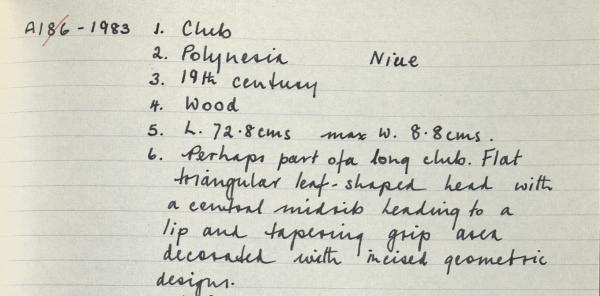 A186-1983 1. Club
2. Polynesia Niue
3. 19th century
4. Wood
5. L. 72.8cms max w. 8.8cms.
6. Perhaps part of a long club. Flat
triangular leaf-shaped head with
a central midrib leading to a
lip and tapering grip area
decorated with incised geometric
designs.